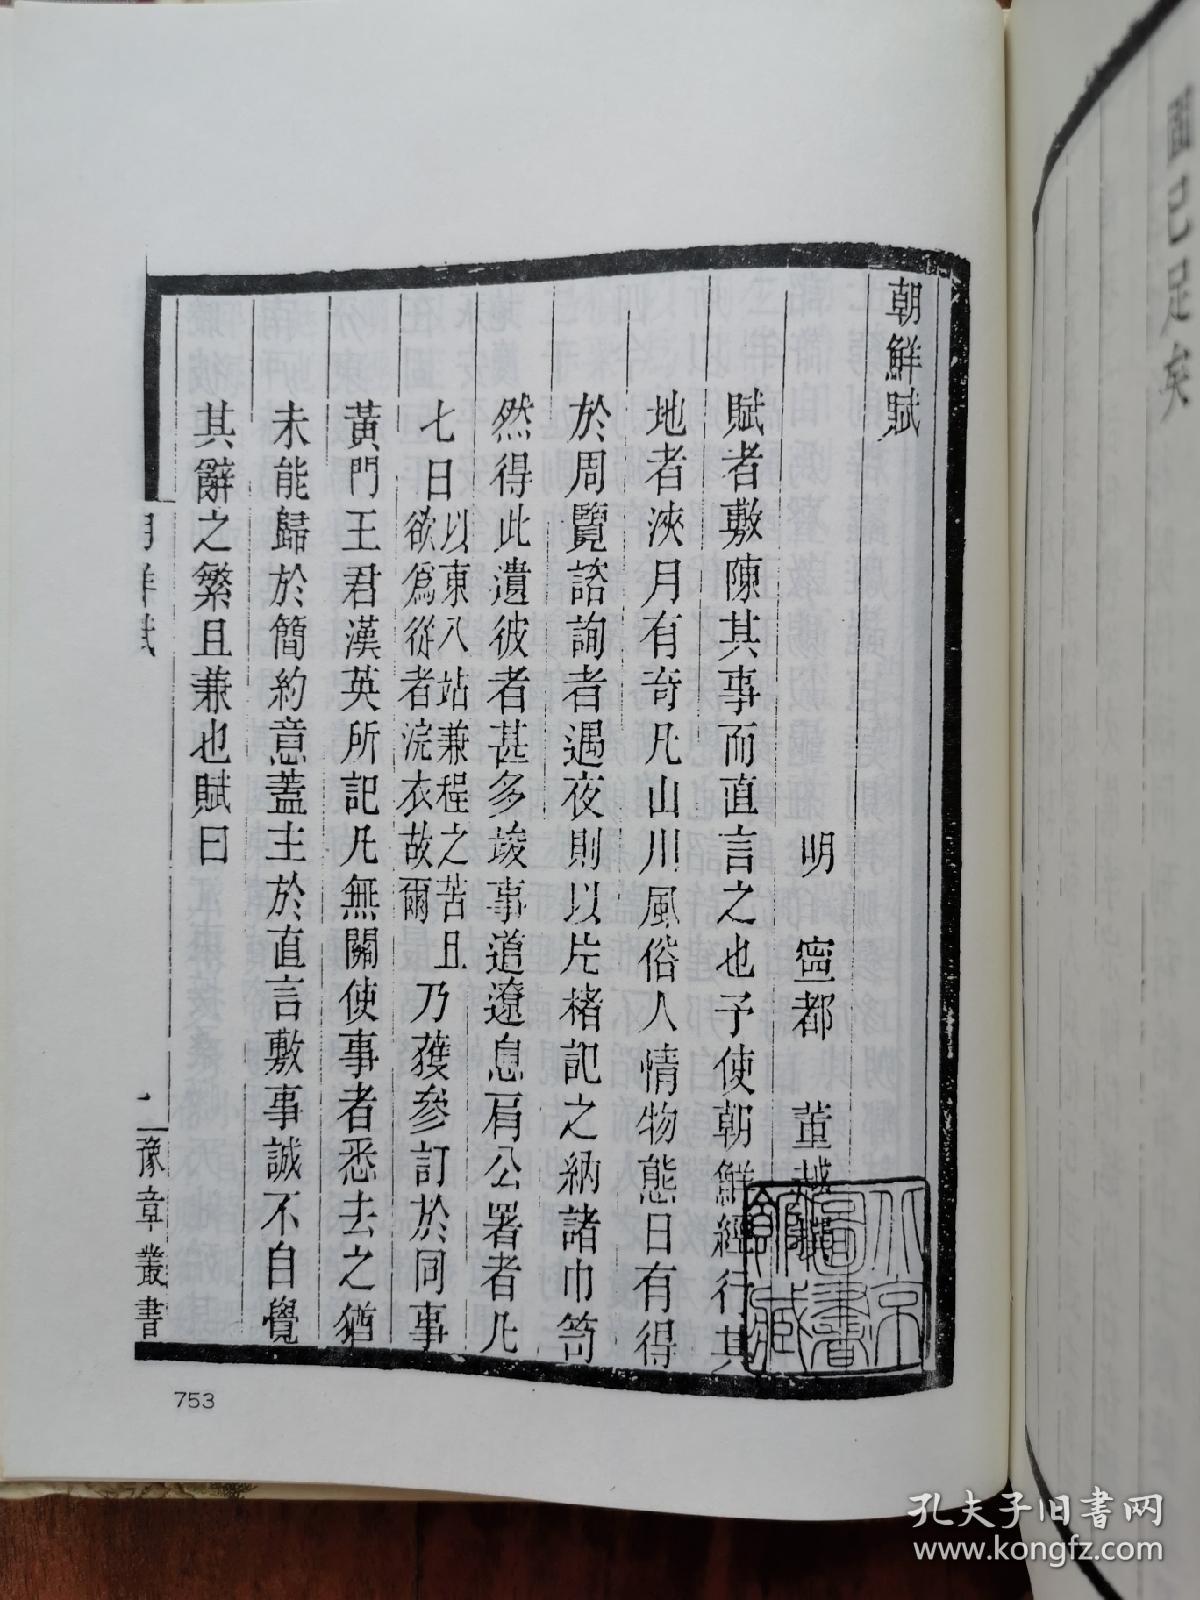 朝鮮賦
明 寧都 董越 撰
賦者敷陳其事而直言之也予使朝鮮經行其
地者浹月有奇凡山川風俗人情物態日有得
於周覽諮詢者遇夜則以片楮記之納諸巾笥
然得此遺彼者甚多竣事道遼息肩公署者凡
七日以東八站兼程之苦且
欲爲從者浣衣故爾
乃獲參訂於同事
黃門王君漢英所記凡無關使事者悉去之猶
未能歸於簡約意蓋主於直言敷事誠不自覺
其辭之繁且兼也賦曰
朝鮮賦
一
豫章叢書
北京
圖書
館藏
753
已足矣
孔夫子旧书网
www.kongfz.com